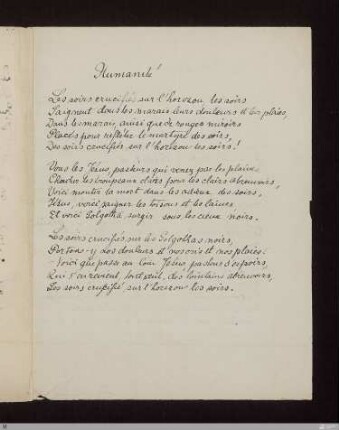 Humanité
Les soirs crucifiés sur l'horizon, les soirs
Saignent dans les marais leurs douleurs et les plaies,
Dans les marais, ainsi que de rouges miroirs
Placés pour refléter le martyre des soirs,
Des soirs crucifiés sur l'horizon les soirs!
Vous les Jésus, pasteurs qui venez par les plaines
Chercher les troupeaux clairs pour les clairs abreuvoirs,
Voici monter la mort dans les adieux des soirs,
Jésus, voici saigner les toisons et les laines
Et voici Golgotha surgir sous les cieux noirs.
Les soirs crucifiés sur les Golgothas noirs,
Portons-y nos douleurs et nos cris et nos plaies:
Voici que passe au loin Jésus pasteur
Qui s'en revient, tout seul, des lointains abreuvoirs,
Les soirs crucifié sur l'horizon les soirs.